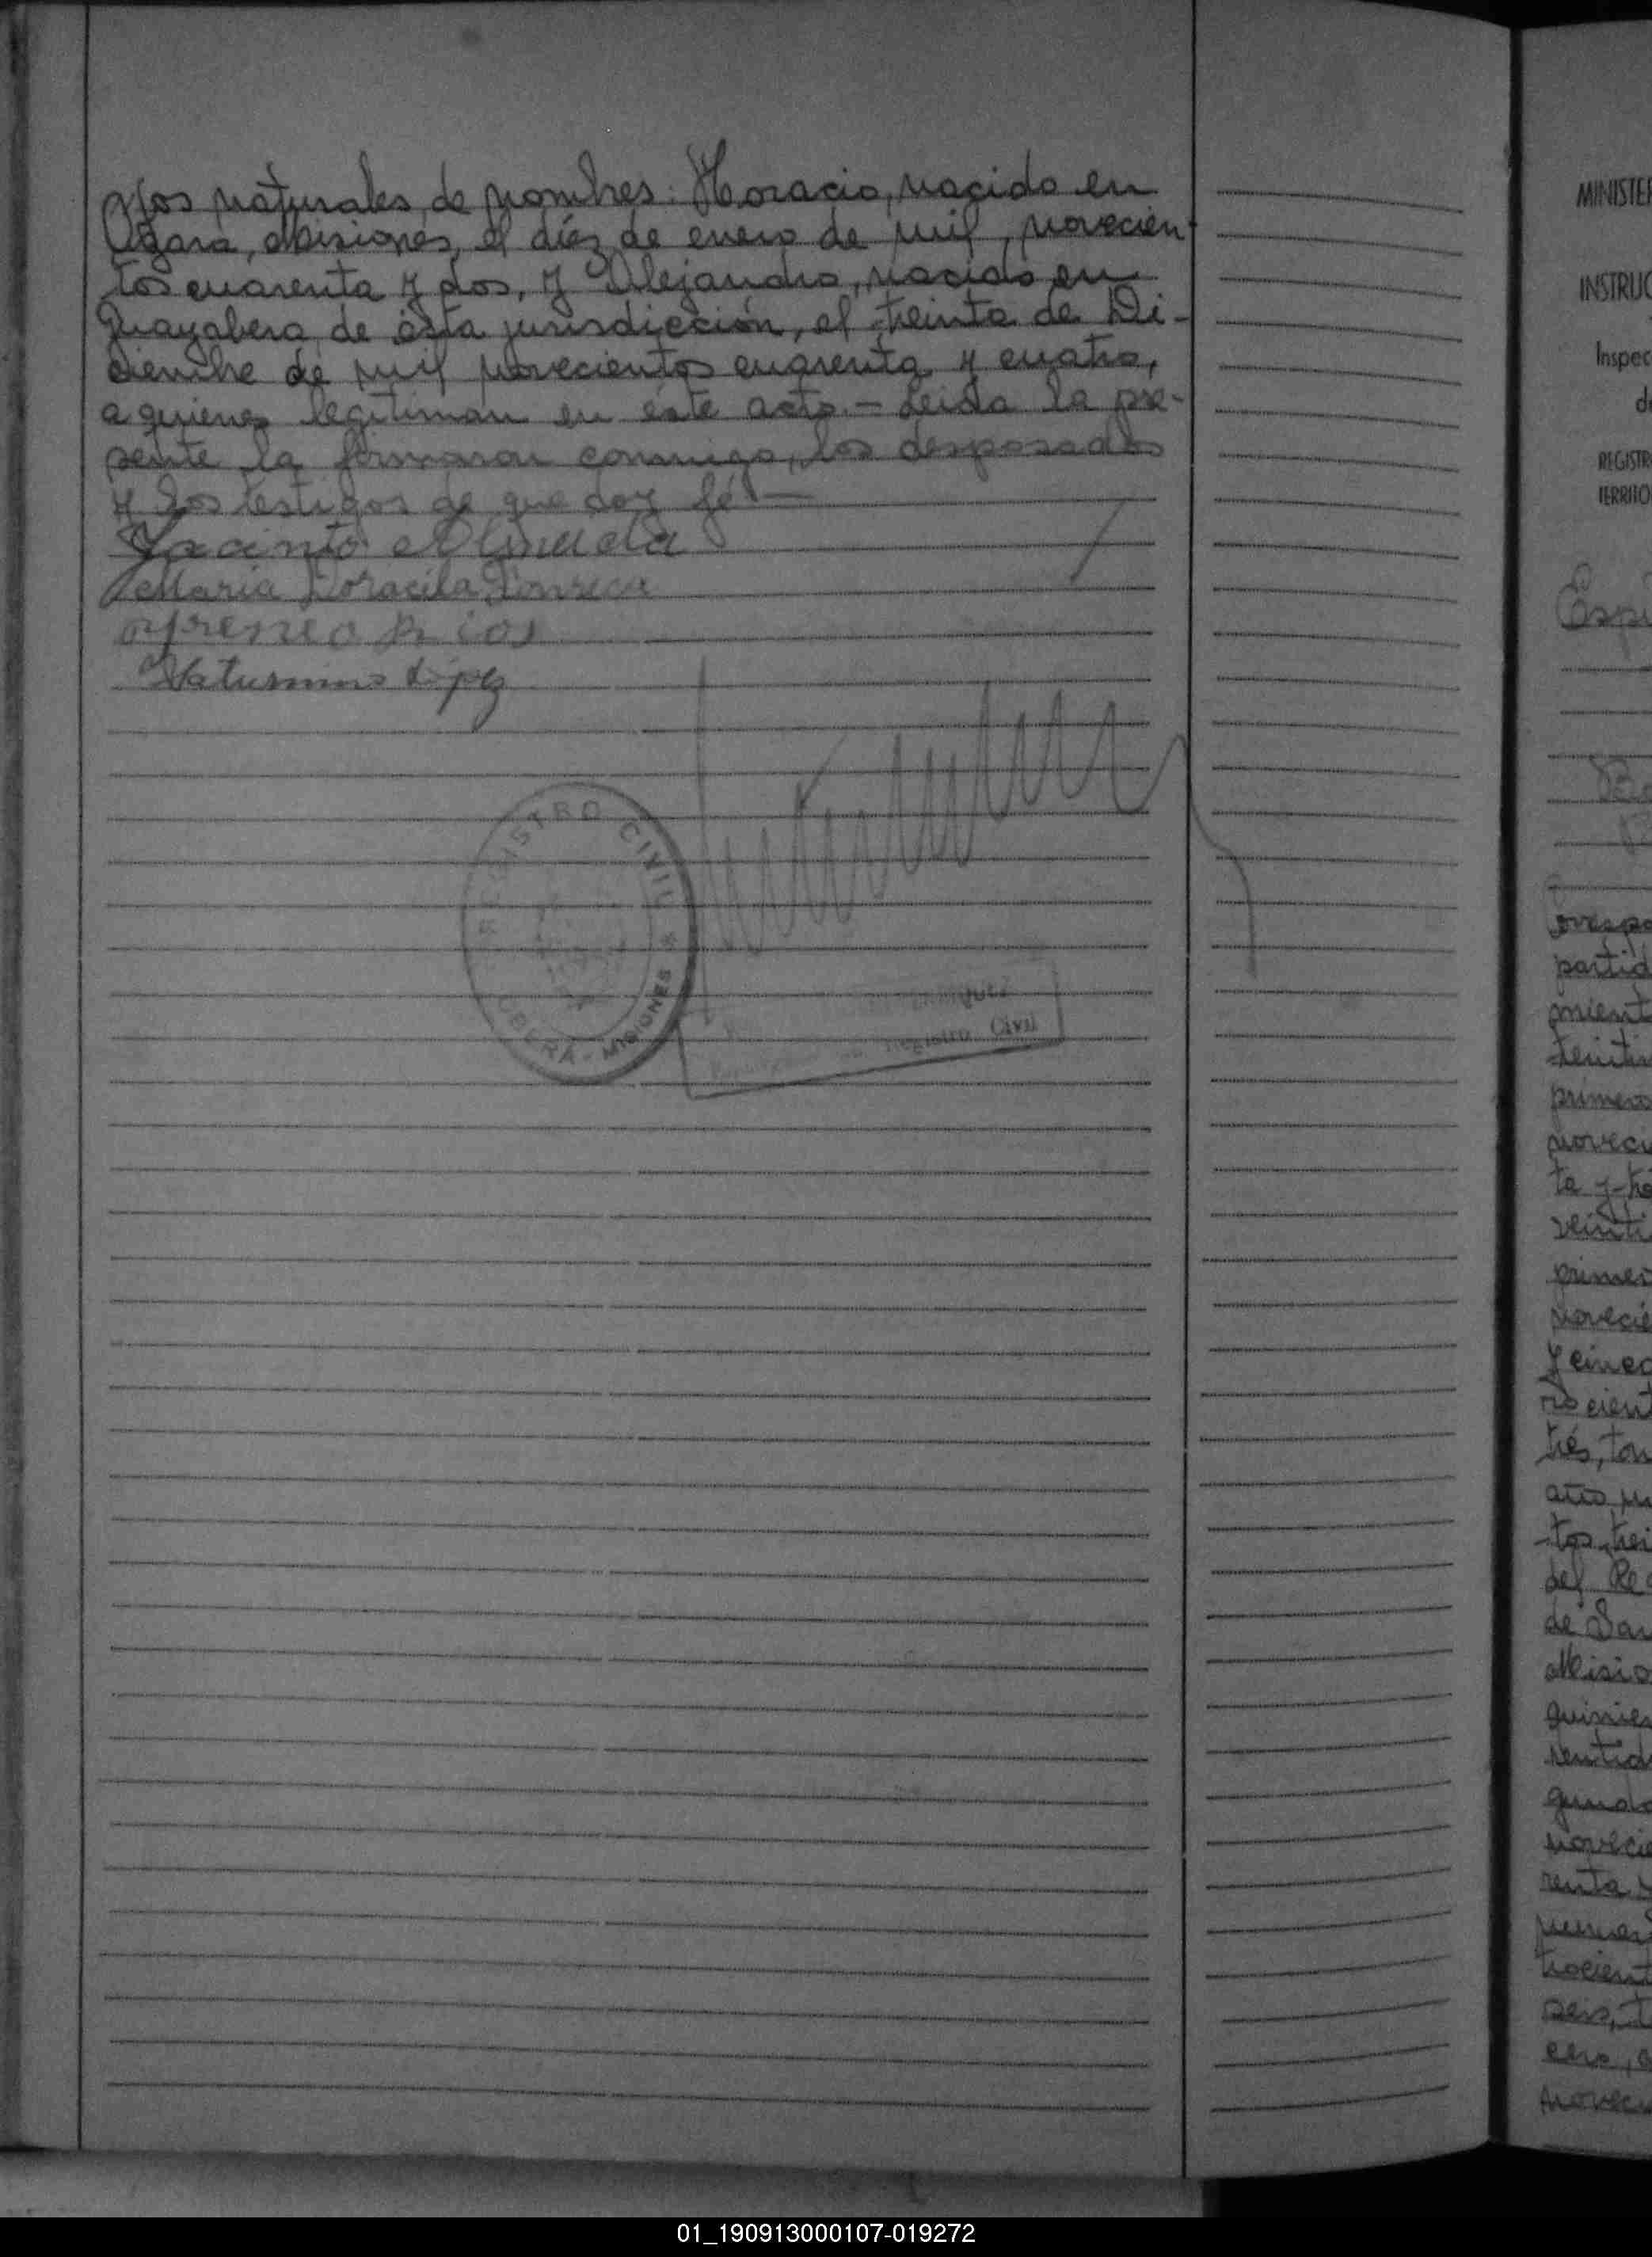 jos naturales, de nombres: Horacio, nacido en
Azara, Misiones, el diéz de enero de mil, novecien
tos cuarenta y dos, y Alejandro, nacido en
Guayabera, de ésta jurisdicción, el treinta de Di-
ciembre de mil novecientos cuarenta y cuatro,
a quienes legitiman en éste acto.- Leida la pre-
sente la firmaron conmigo, los desposados
y los testigos de que doy fé.-
Jacinto Almada
Maria Doracila Fonseca
Yreneo Rios
Saturnino López
REGISTRO CIVIL
OBERÁ - MISIONES
Registro Civil
MINISTER
INSTRUC
Inspec
de
REGISTR
TERRITO
Espi
partid
mient
primero
novecie
ta y tre
veinti
primer
novecie
y cinco
tos cient
trés, tom
año, m
tos, trei
del Re
de San
Misio
quinien
sentid
gundo
novecie
renta y
primer
trocient
seis, t
cero, a
novecie
01_190913000107-019272